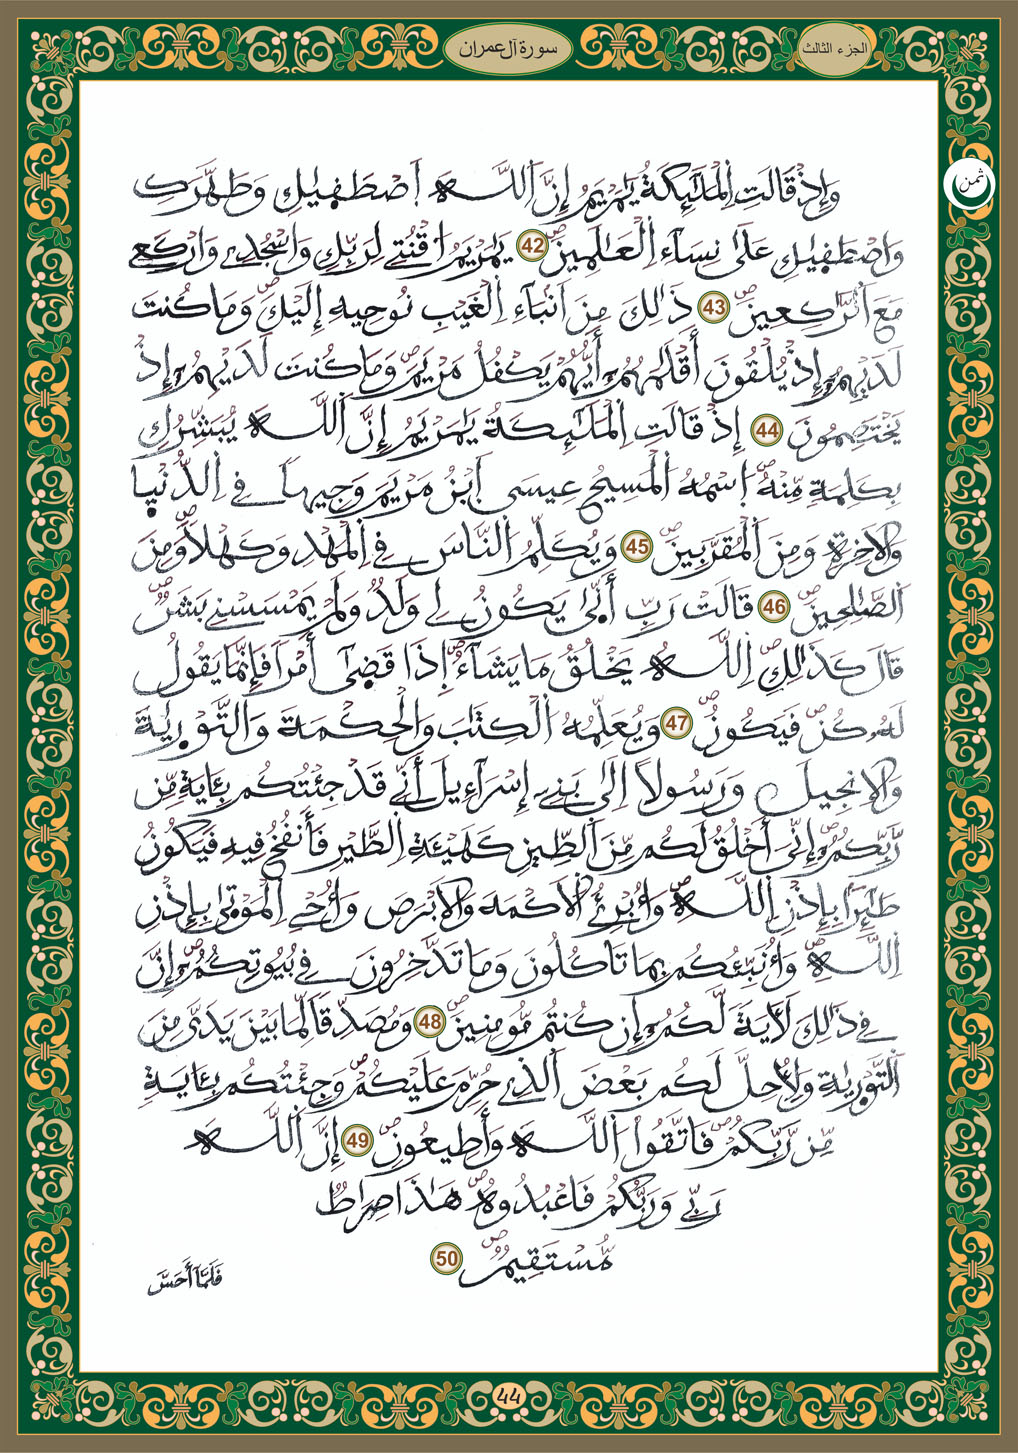 سورة آل عمران
الجزء الثالث
ثمن
وَإِذْ قَالَتِ اِ۬لْمَلَٰٓئِكَةُ يَٰمَرْيَمُ إِنَّ اَ۬للَّهَ اَ۪صْطَف۪يٰكِ وَطَهَّرَكِ
وَاصْطَف۪يٰكِ عَلَىٰ نِسَآءِ اِ۬لْعَٰلَمِينَۖ 42 يَٰمَرْيَمُ اُ۟قْنُتِے لِرَبِّكِ وَاسْجُدِے وَارْكَعِے
مَعَ اَ۬لرَّٰكِعِينَۖ 43 ذَٰلِكَ مِنَ اَنۢبَآءِ اِ۬لْغَيْبِ نُوحِيهِ إِلَيْكَۖ وَمَا كُنتَ
لَدَيْهِمُۥٓ إِذْ يُلْقُونَ أَقْلَٰمَهُمُۥٓ أَيُّهُمْ يَكْفُلُ مَرْيَمَۖ وَمَا كُنتَ لَدَيْهِمُۥٓ إِذْ
يَخْتَصِمُونَ 44 إِذْ قَالَتِ اِ۬لْمَلَٰٓئِكَةُ يَٰمَرْيَمُ إِنَّ اَ۬للَّهَ يُبَشِّرُكِ
بِكَلِمَةٖ مِّنْهُۖ اَ۪سْمُهُ اُ۬لْمَسِيحُ عِيسَى اَ۪بْنُ مَرْيَمَ وَجِيهاٗ فِے اِ۬لدُّنْي۪ا
وَالَاخِرَةِ وَمِنَ اَ۬لْمُقَرَّبِينَۖ 45 وَيُكَلِّمُ اُ۬لنَّاسَ فِے اِ۬لْمَهْدِ وَكَهْلاٗۖ وَمِنَ
اَ۬لصَّٰلِحِينَۖ 46 قَالَتْ رَبِّ أَنّ۪ىٰ يَكُونُ لِے وَلَدٞ وَلَمْ يَمْسَسْنِے بَشَرٞۖ
قَالَ كَذَٰلِكِۖ اِ۬للَّهُ يَخْلُقُ مَا يَشَآءُۖ اِ۪ذَا قَض۪ىٰٓ أَمْراٗ فَإِنَّمَا يَقُولُ
لَهُۥ كُنۖ فَيَكُونُۖ 47 وَيُعَلِّمُهُ اُ۬لْكِتَٰبَ وَالْحِكْمَةَ وَالتَّوْر۪يٰةَ
وَالِانجِيلَ وَرَسُولاً اِلَىٰ بَنِےٓ إِسْرَآءِيلَ أَنِّے قَدْ جِئْتُكُم بِـَٔايَةٖ مِّن
رَّبِّكُمُۥٓۖ إِنِّيَ أَخْلُقُ لَكُم مِّنَ اَ۬لطِّينِ كَهَيْـَٔةِ اِ۬لطَّيْرِ فَأَنفُخُ فِيهِ فَيَكُونُ
طَٰٓئِراَۢ بِإِذْنِ اِ۬للَّهِۖ وَأُبْرِۓُ اُ۬لَاكْمَهَ وَالَابْرَصَ وَأُحْيِ اِ۬لْمَوْت۪يٰ بِإِذْنِ
اِ۬للَّهِۖ وَأُنَبِّئُكُم بِمَا تَاكُلُونَ وَمَا تَدَّخِرُونَ فِے بُيُوتِكُمُۥٓۖ إِنَّ
فِے ذَٰلِكَ لَأٓيَةٗ لَّكُمُۥٓ إِن كُنتُم مُّومِنِينَۖ 48 وَمُصَدِّقاٗ لِّمَا بَيْنَ يَدَيَّ مِنَ
اَ۬لتَّوْر۪يٰةِ وَلِأُحِلَّ لَكُم بَعْضَ اَ۬لذِے حُرِّمَ عَلَيْكُمْۖ وَجِئْتُكُم بِـَٔايَةٖ
مِّن رَّبِّكُمْۖ فَاتَّقُواْ اُ۬للَّهَ وَأَطِيعُونِۖ 49 إِنَّ اَ۬للَّهَ
رَبِّے وَرَبُّكُمْ فَاعْبُدُوهُۖ هَٰذَا صِرَٰطٞ
مُّسْتَقِيمٞۖ 50
فَلَمَّآ أَحَسَّ
44